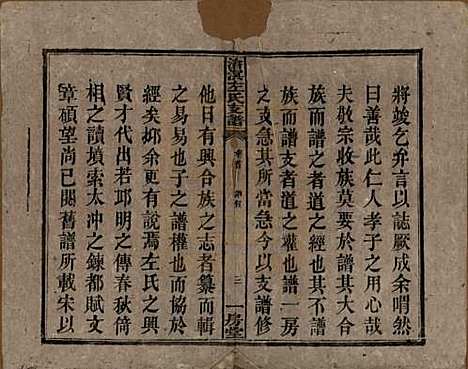 將竣乞弁言以誌厥成余喟然
曰善哉此仁人孝子之用心哉
夫敬宗收族莫要於譜其大合
族而譜之者道之經也其不譜
族而譜支者道之權也一房
之支急其所當急今以支譜修
左氏支譜
卷首
譜序
三
一房堂
他日有興合族之志者纂而輯
之易易也子之譜權也而協於
經矣抑余更有說焉左氏之興
賢才代出若邱明之傳春秋倚
相之讀墳索太冲之鍊都賦文
章碩望尚已閱舊譜所載宋以